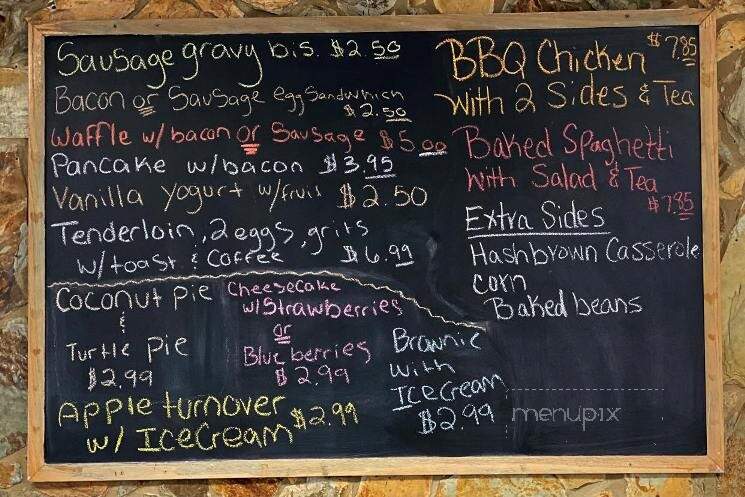 Sausage gravy bis. $2.50
Bacon or Sausage egg Sandwhich
$2.50
Waffle w/ bacon or Sausage $5.00
Pancake w/bacon $3.95
Vanilla yogurt w/fruit $2.50
Tenderloin, 2 eggs, grits
w/toast & Coffee $6.99
Coconut pie
&
Turtle pie
$2.99
Cheesecake
w/Strawberries
or
Blueberries
$2.99
Apple turnover $2.99
w/ IceCream
Brownie
with
IceCream
$2.99
BBQ Chicken $7.85
with 2 Sides & Tea
Baked Spaghetti
with Salad & Tea
$7.85
Extra Sides
Hashbrown Casserole
corn
Baked beans
menupix